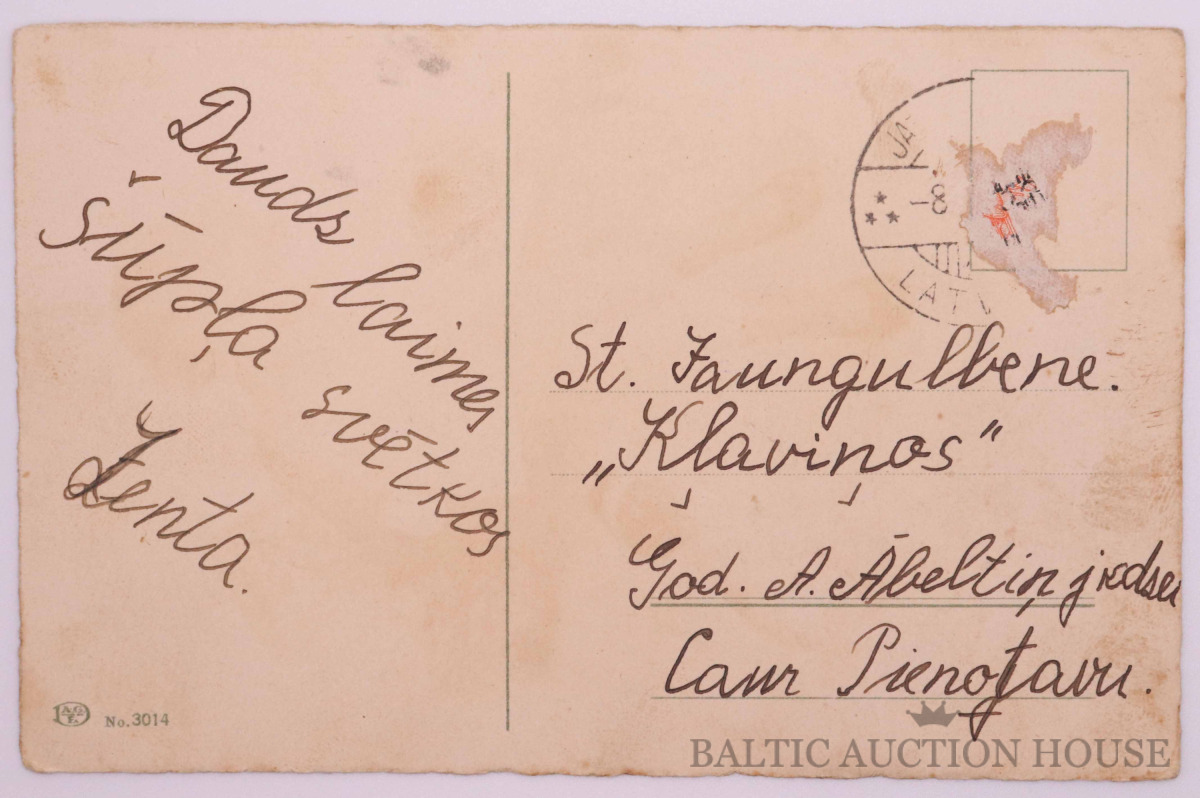 Daudz laimes
šūpļa svētkos
Zenta.
No. 3014
JA
-8
LATV
St. Jaungulbene.
„Kļaviņos"
God. A. Ābeltiņ jkdzei
Caur Pienotavu.
BALTIC AUCTION HOUSE